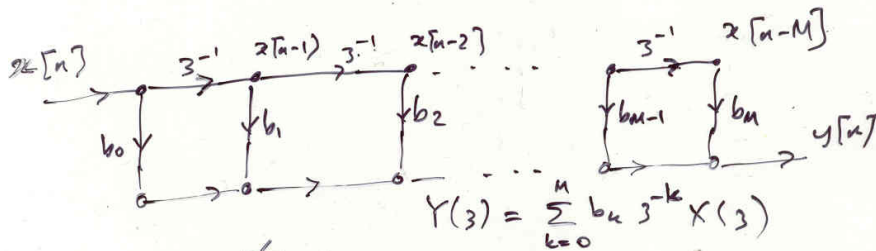 x[n] z⁻¹ x[n-1) z⁻¹ x[n-2] . . . . z⁻¹ x[n-M]
b₀ b₁ b₂ b_{M-1} b_M
. . . . y[n]
Y(z) = \sum_{k=0}^{M} b_k z^{-k} X(z)